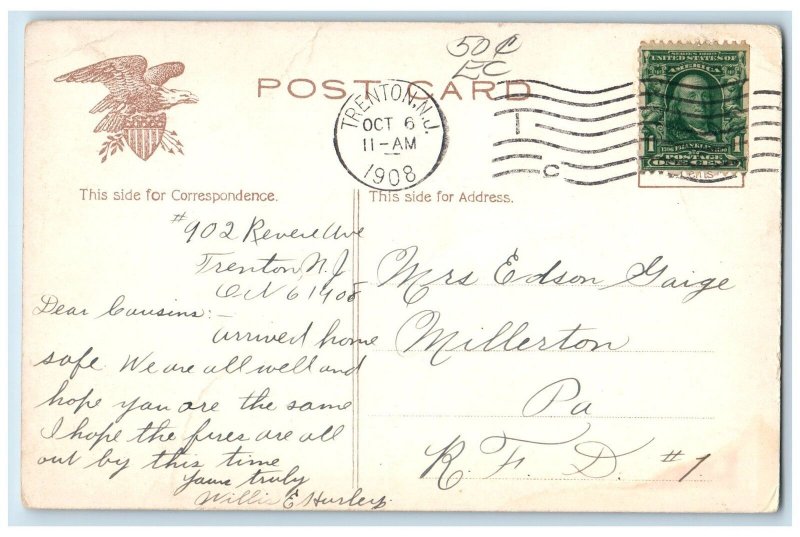 50¢
EC
POST CARD
TRENTON, N.J.
OCT 6
11-AM
1908
1
C
SERIES 1902
UNITED STATES OF
AMERICA
1 FRANKLIN 1
POSTAGE
ONE CENT
This side for Correspondence.
This side for Address.
#902 Revere Ave
Trenton, N. J
Oct 6 1908
Dear Cousins:-
arrived home
safe We are all well and
hope you are the same
I hope the fires are all
out by this time
Yours truly
Willis E Hurley
Mrs Edson Gaige
Millerton
Pa
R. F. D. #1